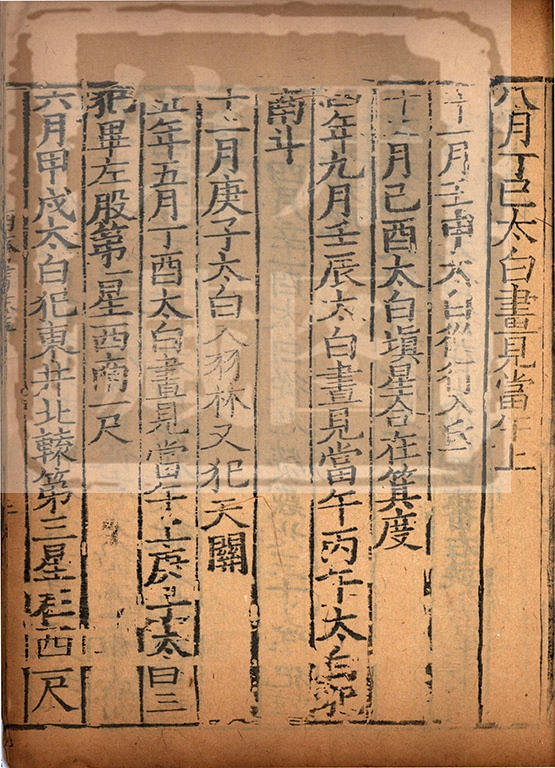 八月丁巳太白晝見當午上
十一月壬申太白從行入氐
十二月己酉太白塡星合在箕度
四年九月壬辰太白晝見當午丙午太白犯
南斗
十二月庚子太白入羽林又犯天關
五年五月丁酉太白晝見當午上庚子太白三
犯畢左股第一星西南一尺
六月甲戌太白犯東井北轅第三星在西一尺